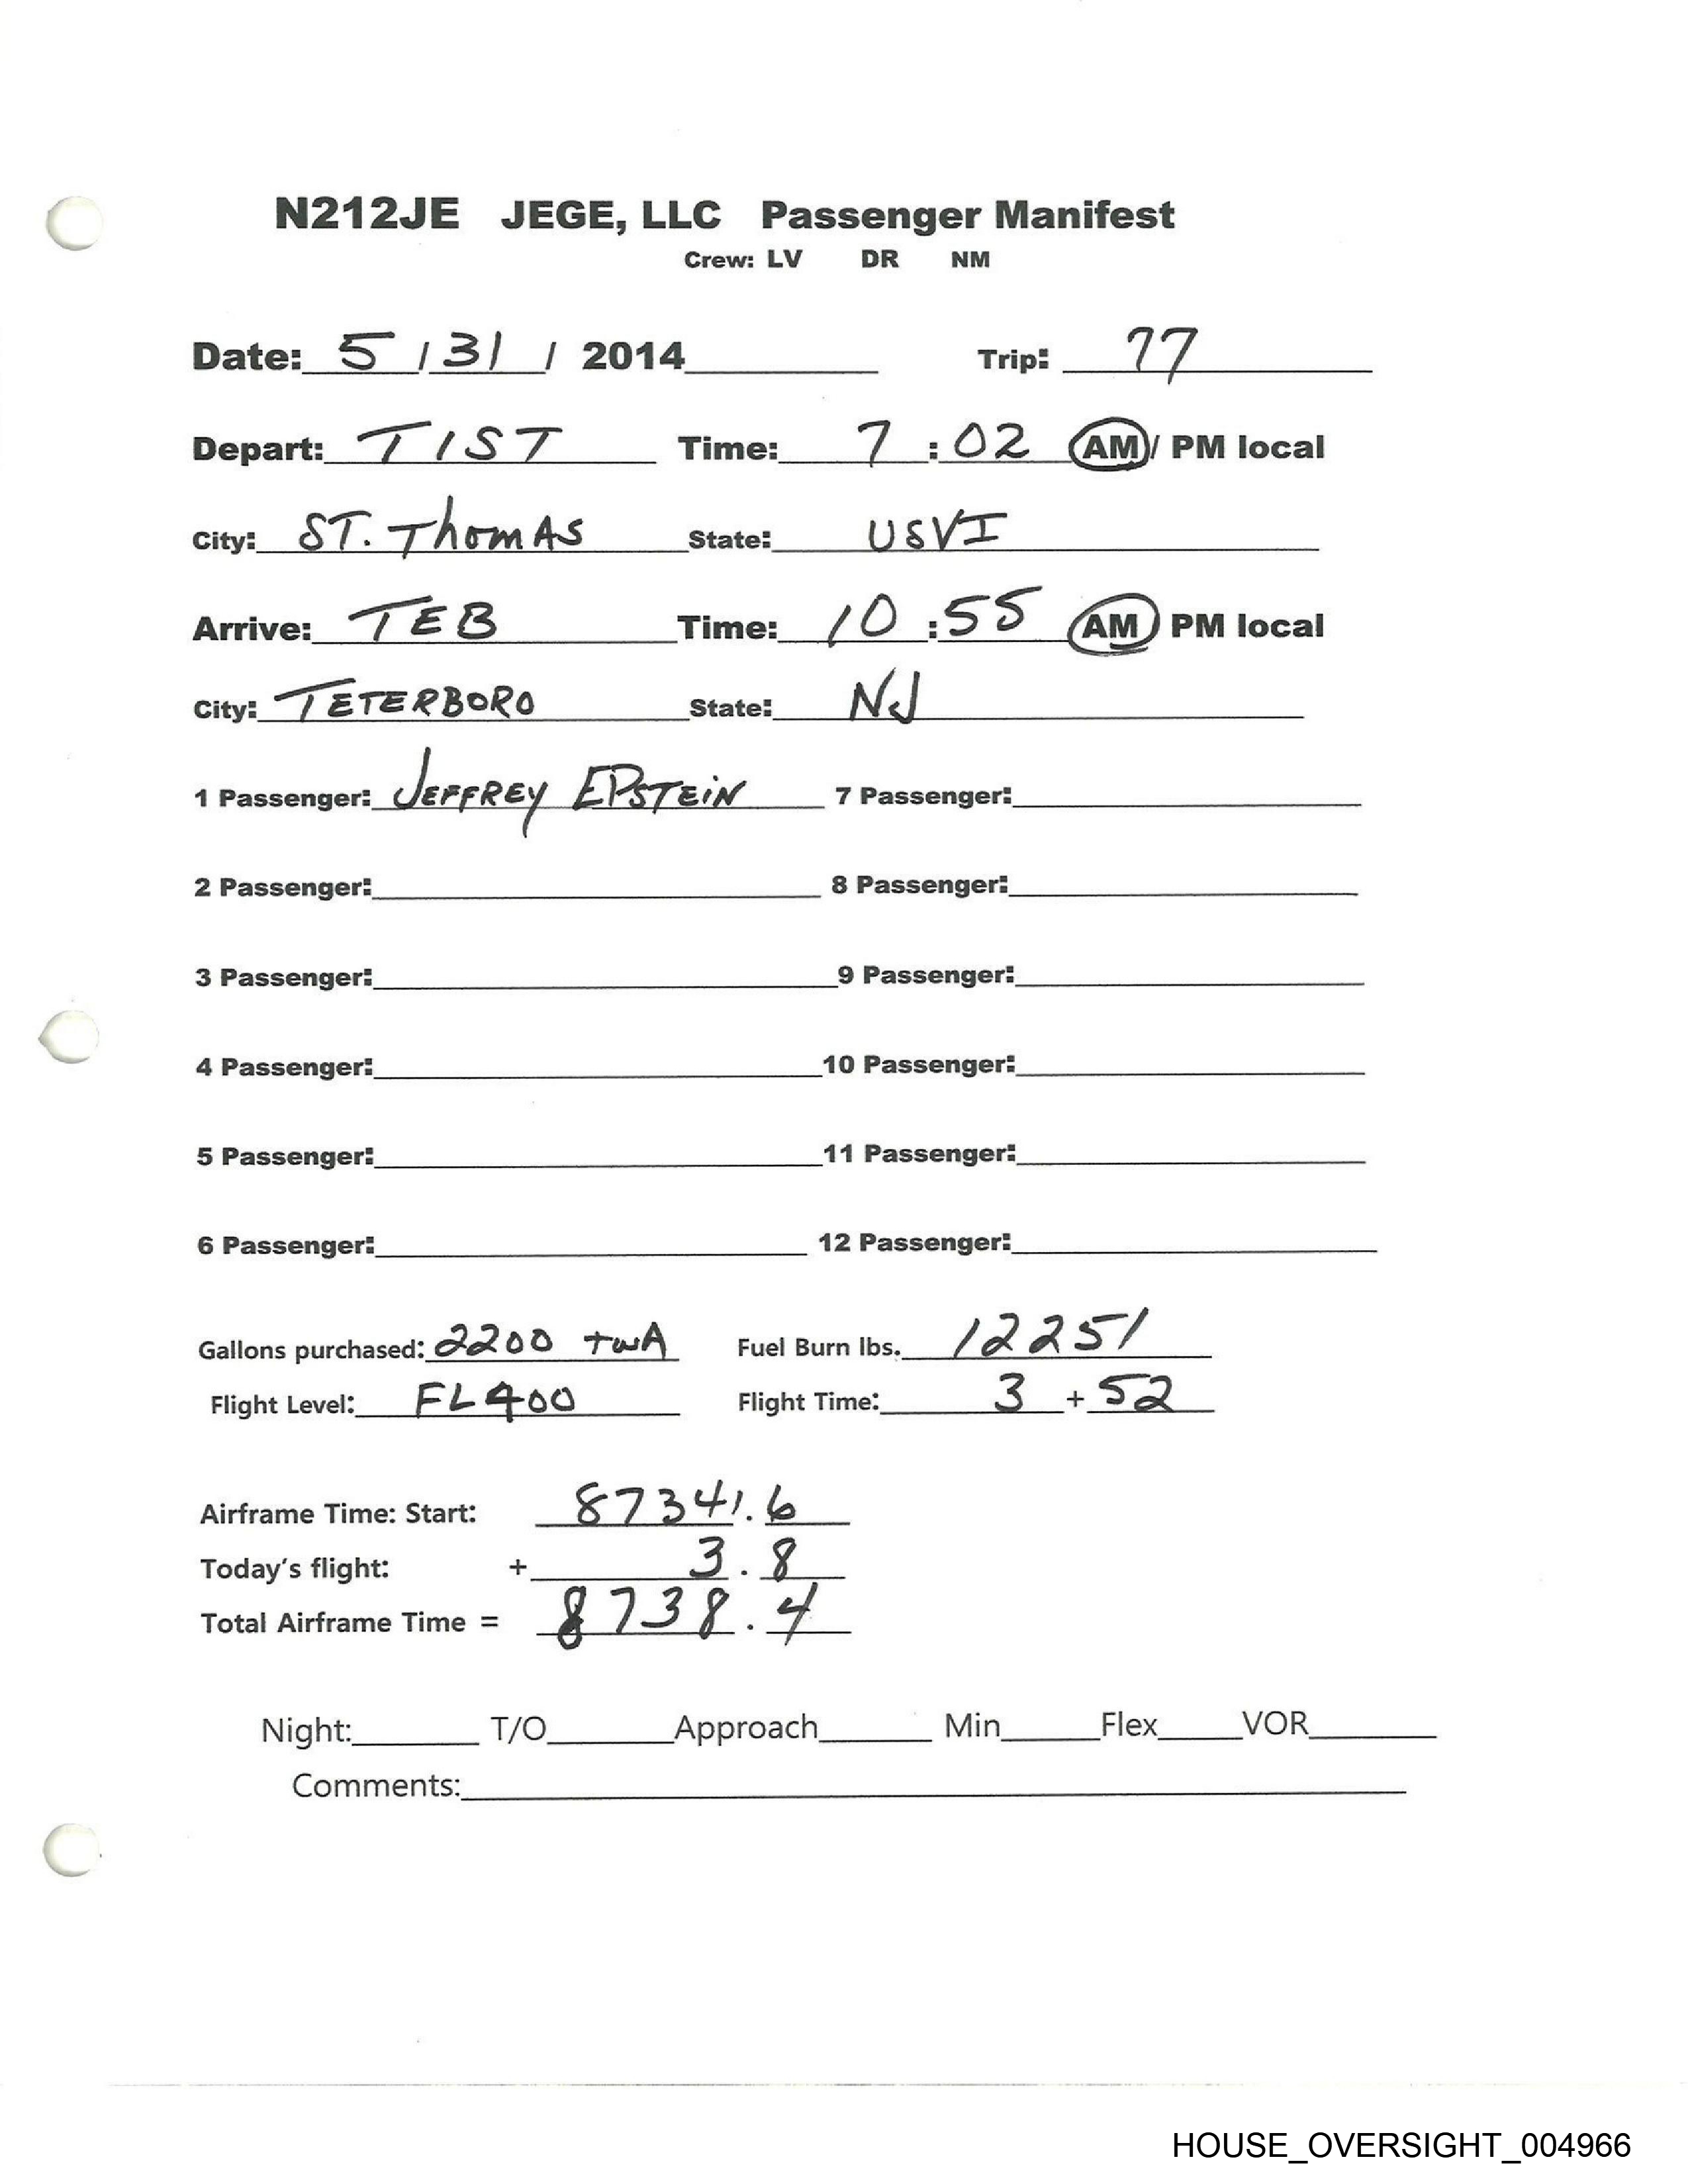 N212JE JEGE, LLC Passenger Manifest
Crew: LV DR NM
Date: 5 / 31 / 2014 Trip: 77
Depart: TIST Time: 7 : 02 AM / PM local
City: ST. ThomAS State: USVI
Arrive: TEB Time: 10 : 55 AM PM local
City: TETERBORO State: NJ
1 Passenger: JEFFREY EPSTEiN 7 Passenger:
2 Passenger: 8 Passenger:
3 Passenger: 9 Passenger:
4 Passenger: 10 Passenger:
5 Passenger: 11 Passenger:
6 Passenger: 12 Passenger:
Gallons purchased: 2200 twA Fuel Burn lbs. 12251
Flight Level: FL400 Flight Time: 3 + 52
Airframe Time: Start: 8734.6
Today's flight: + 3.8
Total Airframe Time = 8738.4
Night: T/O Approach Min Flex VOR
Comments:
HOUSE_OVERSIGHT_004966